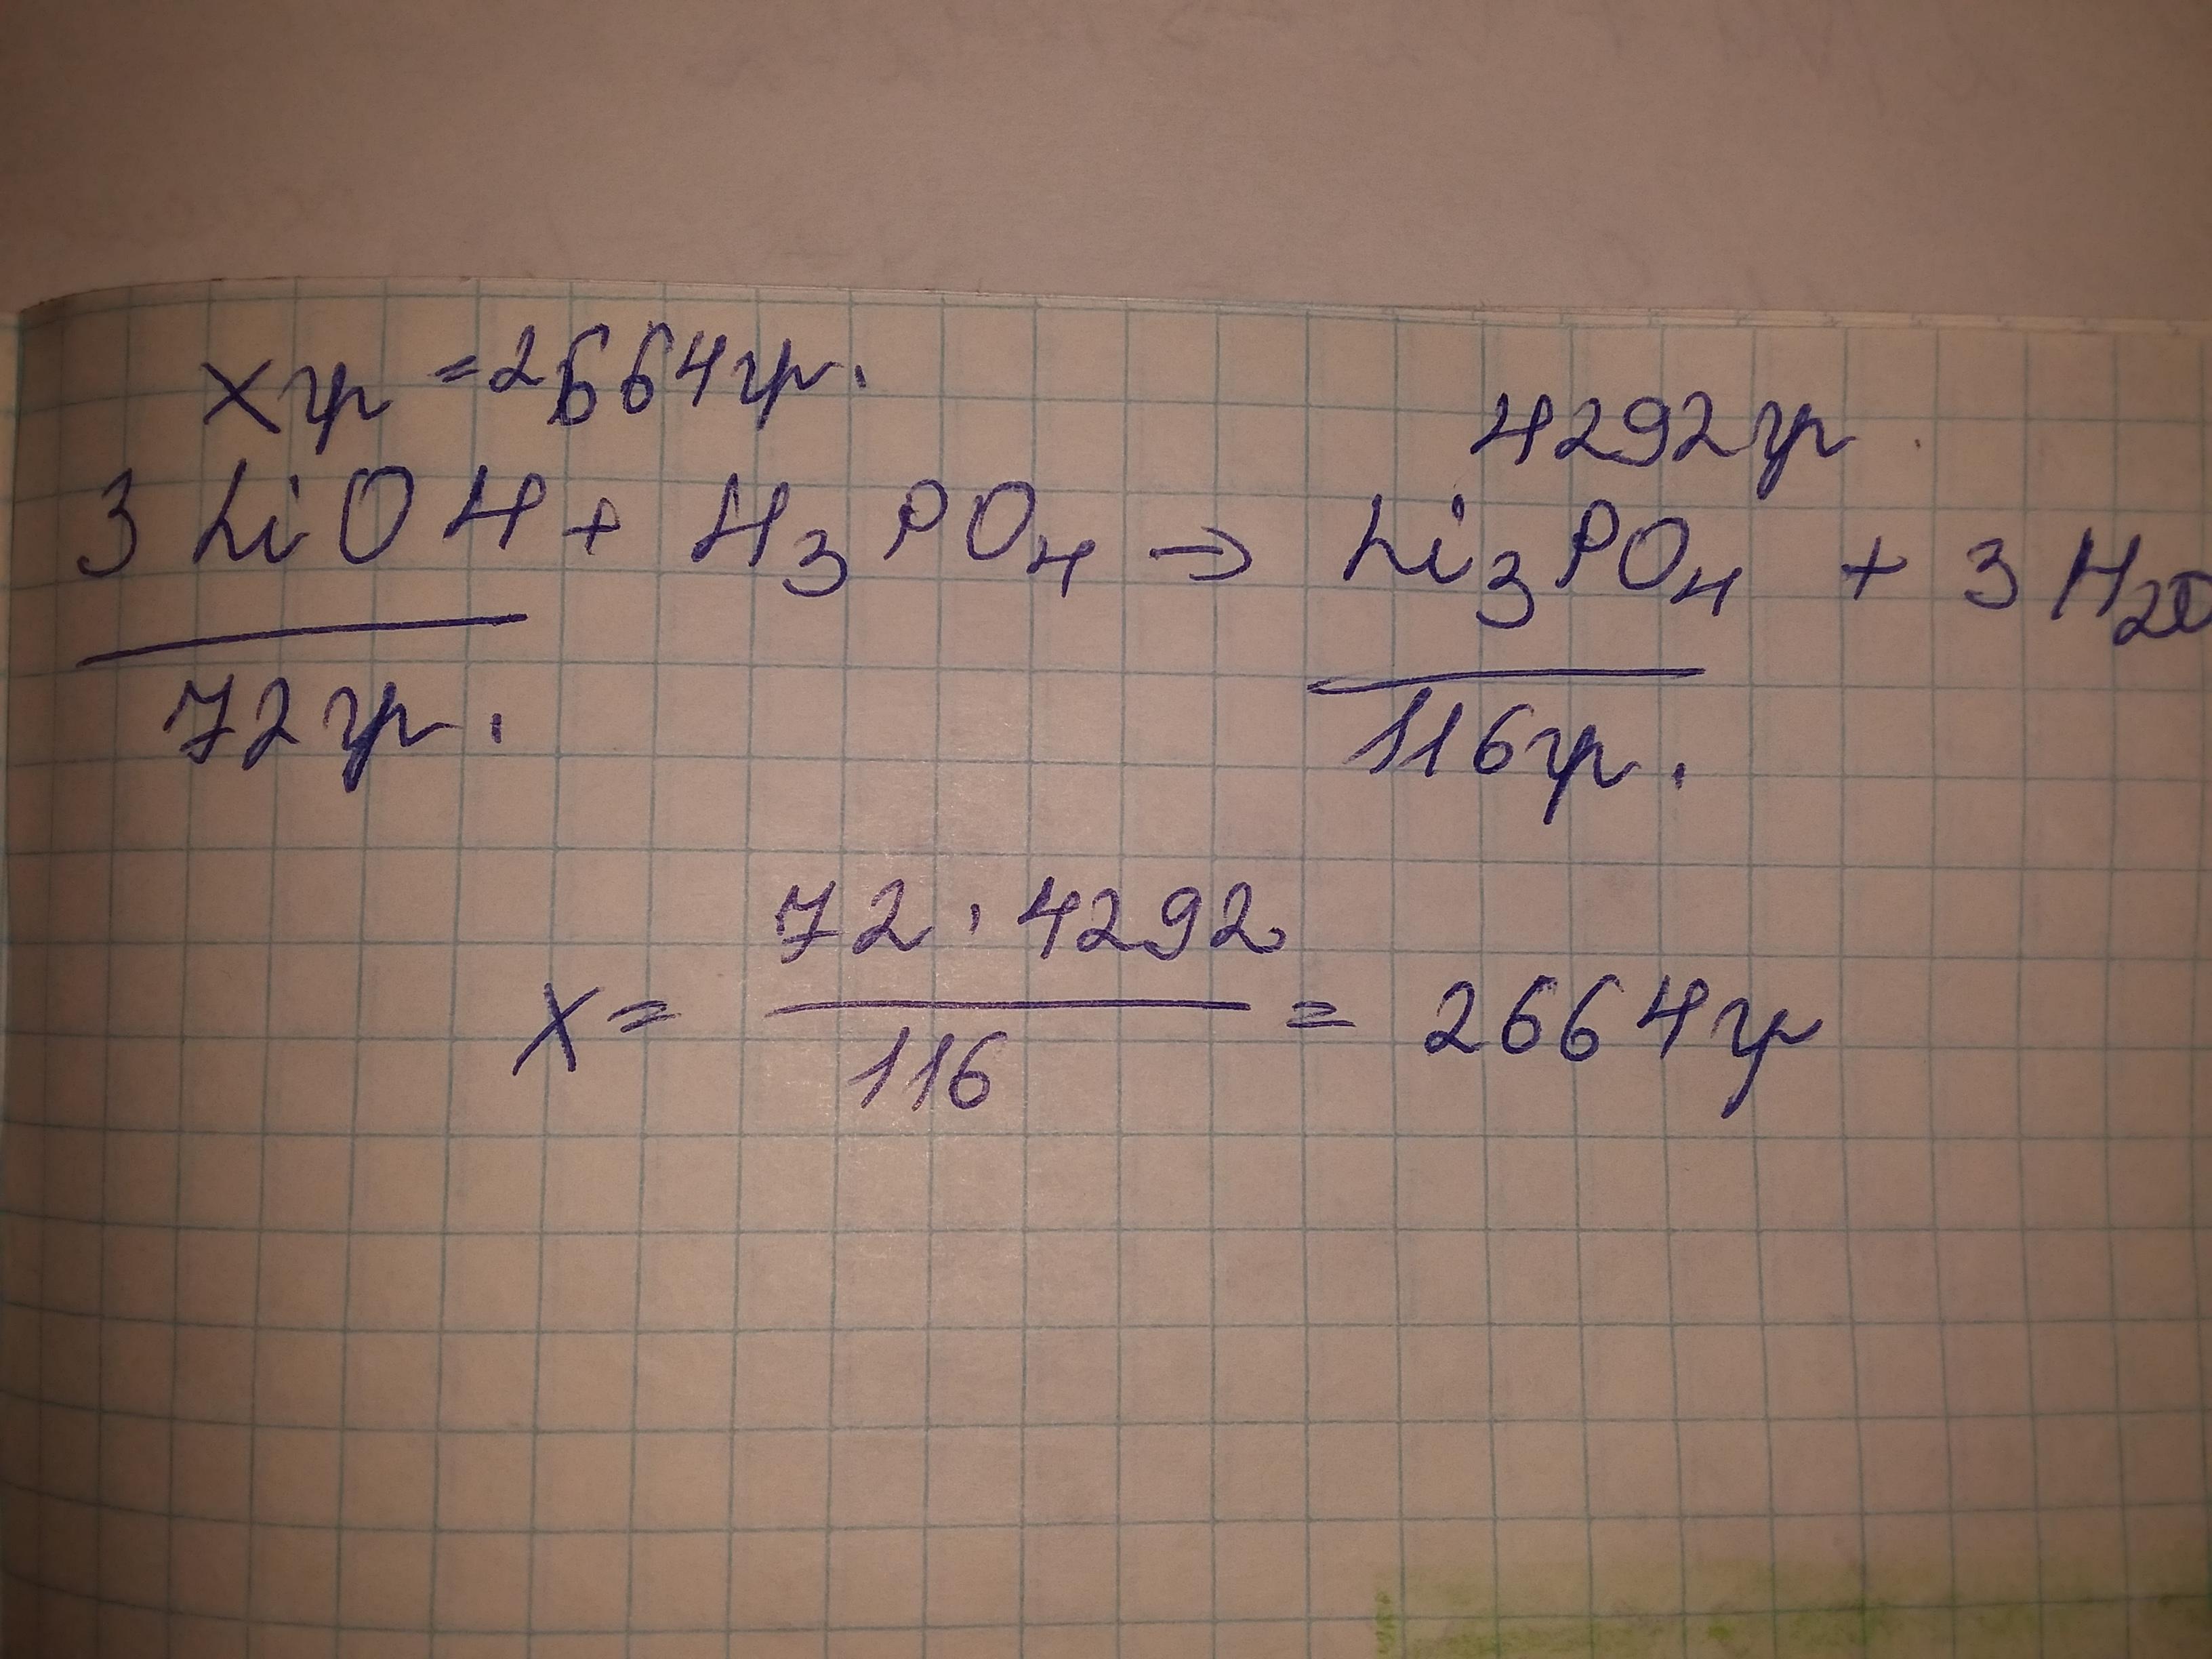 x гр = 2664гр.
4292гр
3 LiOH + H₃PO₄ → Li₃PO₄ + 3 H₂O
72гр.
116гр.
72 · 4292
x = ——— = 2664гр
116